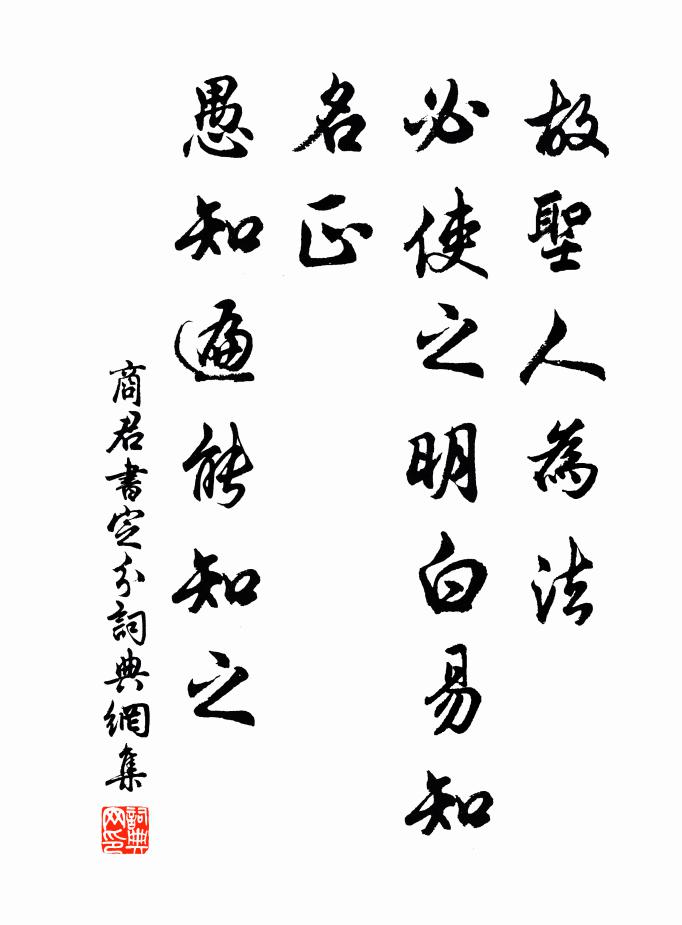 故聖人為法
必使之明白易知
名正
愚知遍能知之
商君書定分詞典網集
詞典網印